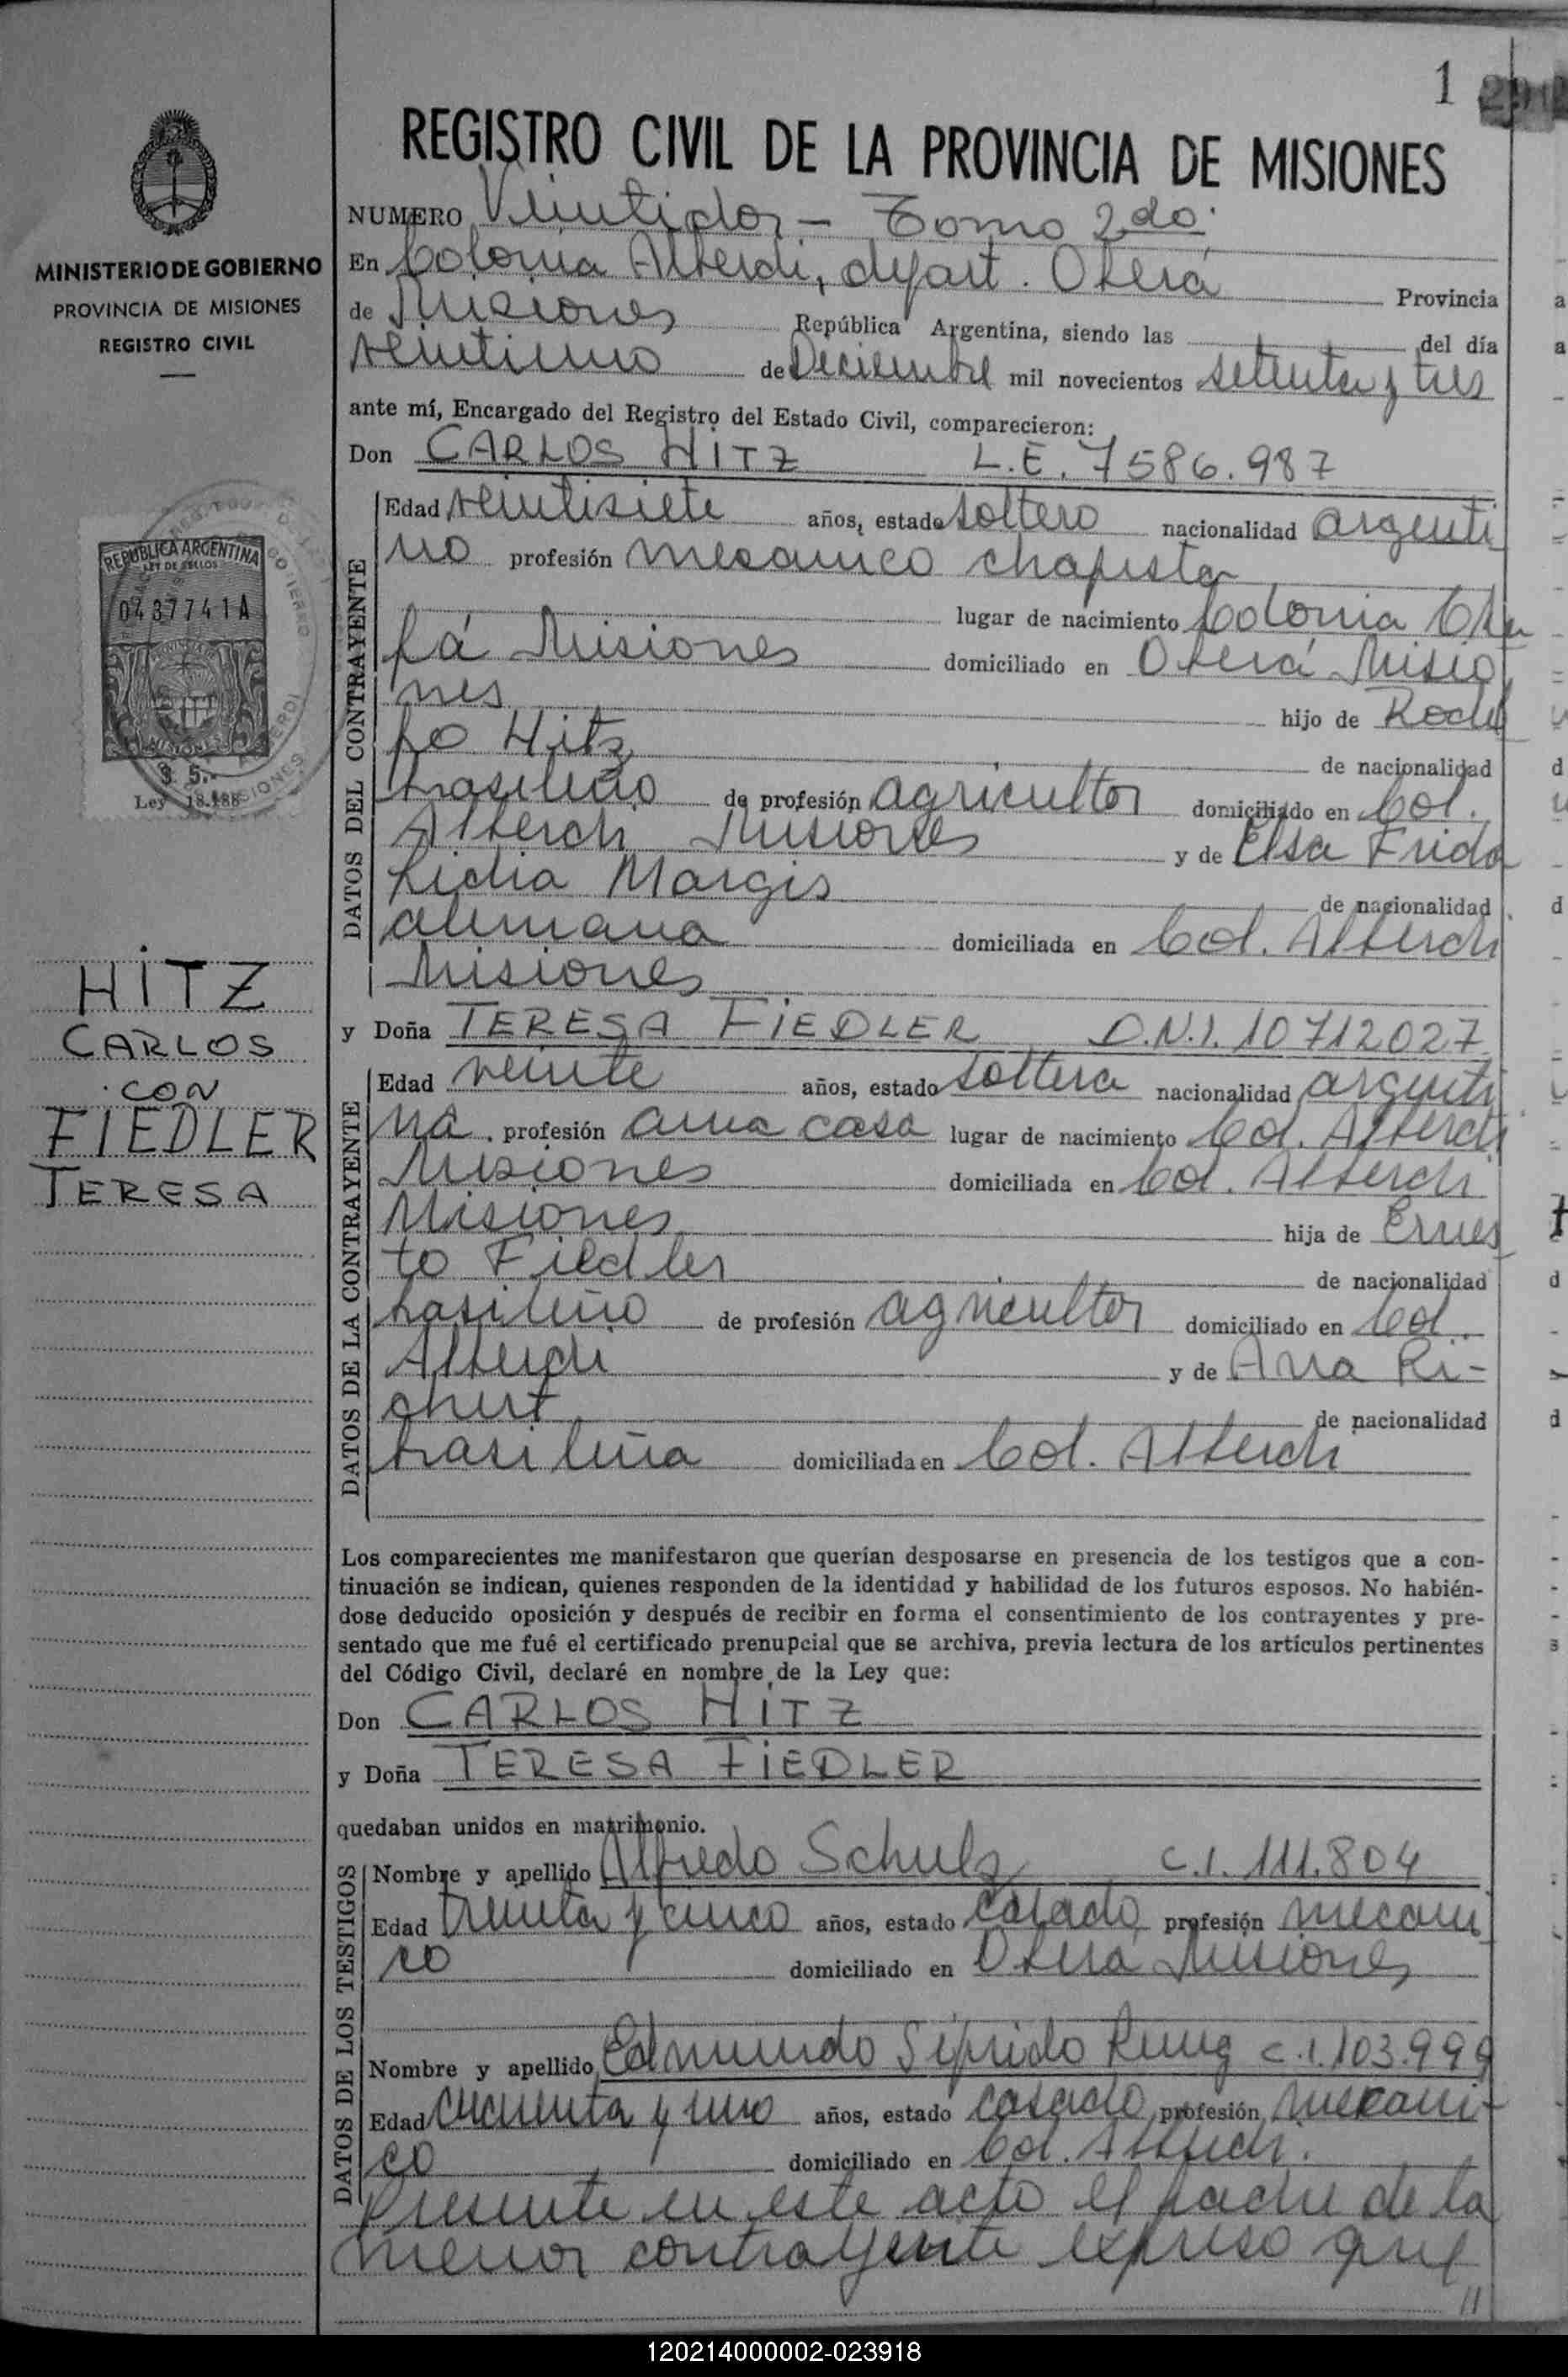 1
REGISTRO CIVIL DE LA PROVINCIA DE MISIONES
MINISTERIO DE GOBIERNO
PROVINCIA DE MISIONES
REGISTRO CIVIL
REPUBLICA ARGENTINA
LEY DE SELLOS
0437741A
PROVINCIA DE
MISIONES
$ 5.-
Ley 18.188
HITZ
CARLOS
CON
FIEDLER
TERESA
NUMERO Veintidos - Tomo 2do.
En Colonia Alberdi, depart. Oberá Provincia
de Misiones República Argentina, siendo las del día
veintiuno de Deciembre mil novecientos setenta y tres
ante mí, Encargado del Registro del Estado Civil, comparecieron:
Don CARLOS HITZ L.E. 7586.987
DATOS DEL CONTRAYENTE
Edad veintisiete años, estado soltero nacionalidad argenti
no profesión mecanico chapista
lugar de nacimiento Colonia Obe
rá Misiones domiciliado en Oberá Misio
nes hijo de Rodol
fo Hitz de nacionalidad
brasileño de profesión agricultor domiciliado en Col.
Alberdi Misiones y de Elsa Frida
Lidia Margis de nacionalidad
alemana domiciliada en Col. Alberdi
Misiones
y Doña TERESA FIEDLER D.N.I. 10712027
DATOS DE LA CONTRAYENTE
Edad veinte años, estado soltera nacionalidad argenti
na. profesión ama casa lugar de nacimiento Col. Alberdi
Misiones domiciliada en Col. Alberdi
Misiones hija de Ernes
to Fiedler de nacionalidad
brasileño de profesión agricultor domiciliado en Col.
Alberdi y de Ana Ri-
chert de nacionalidad
brasileña domiciliada en Col. Alberdi
Los comparecientes me manifestaron que querían desposarse en presencia de los testigos que a con-
tinuación se indican, quienes responden de la identidad y habilidad de los futuros esposos. No habién-
dose deducido oposición y después de recibir en forma el consentimiento de los contrayentes y pre-
sentado que me fué el certificado prenupcial que se archiva, previa lectura de los artículos pertinentes
del Código Civil, declaré en nombre de la Ley que:
Don CARLOS HITZ
y Doña TERESA FIEDLER
quedaban unidos en matrimonio.
DATOS DE LOS TESTIGOS
Nombre y apellido Alfredo Schulz C.I. 111.804
Edad treinta y cinco años, estado casado profesión mecani
co domiciliado en Oberá Misiones
Nombre y apellido Edmundo Sifrido C.I. 103.999
Edad cincuenta y uno años, estado casado profesión mecani-
co domiciliado en Col. Alberdi.
Presente en este acto el padre de la
menor contrayente expreso que
//
120214000002-023918